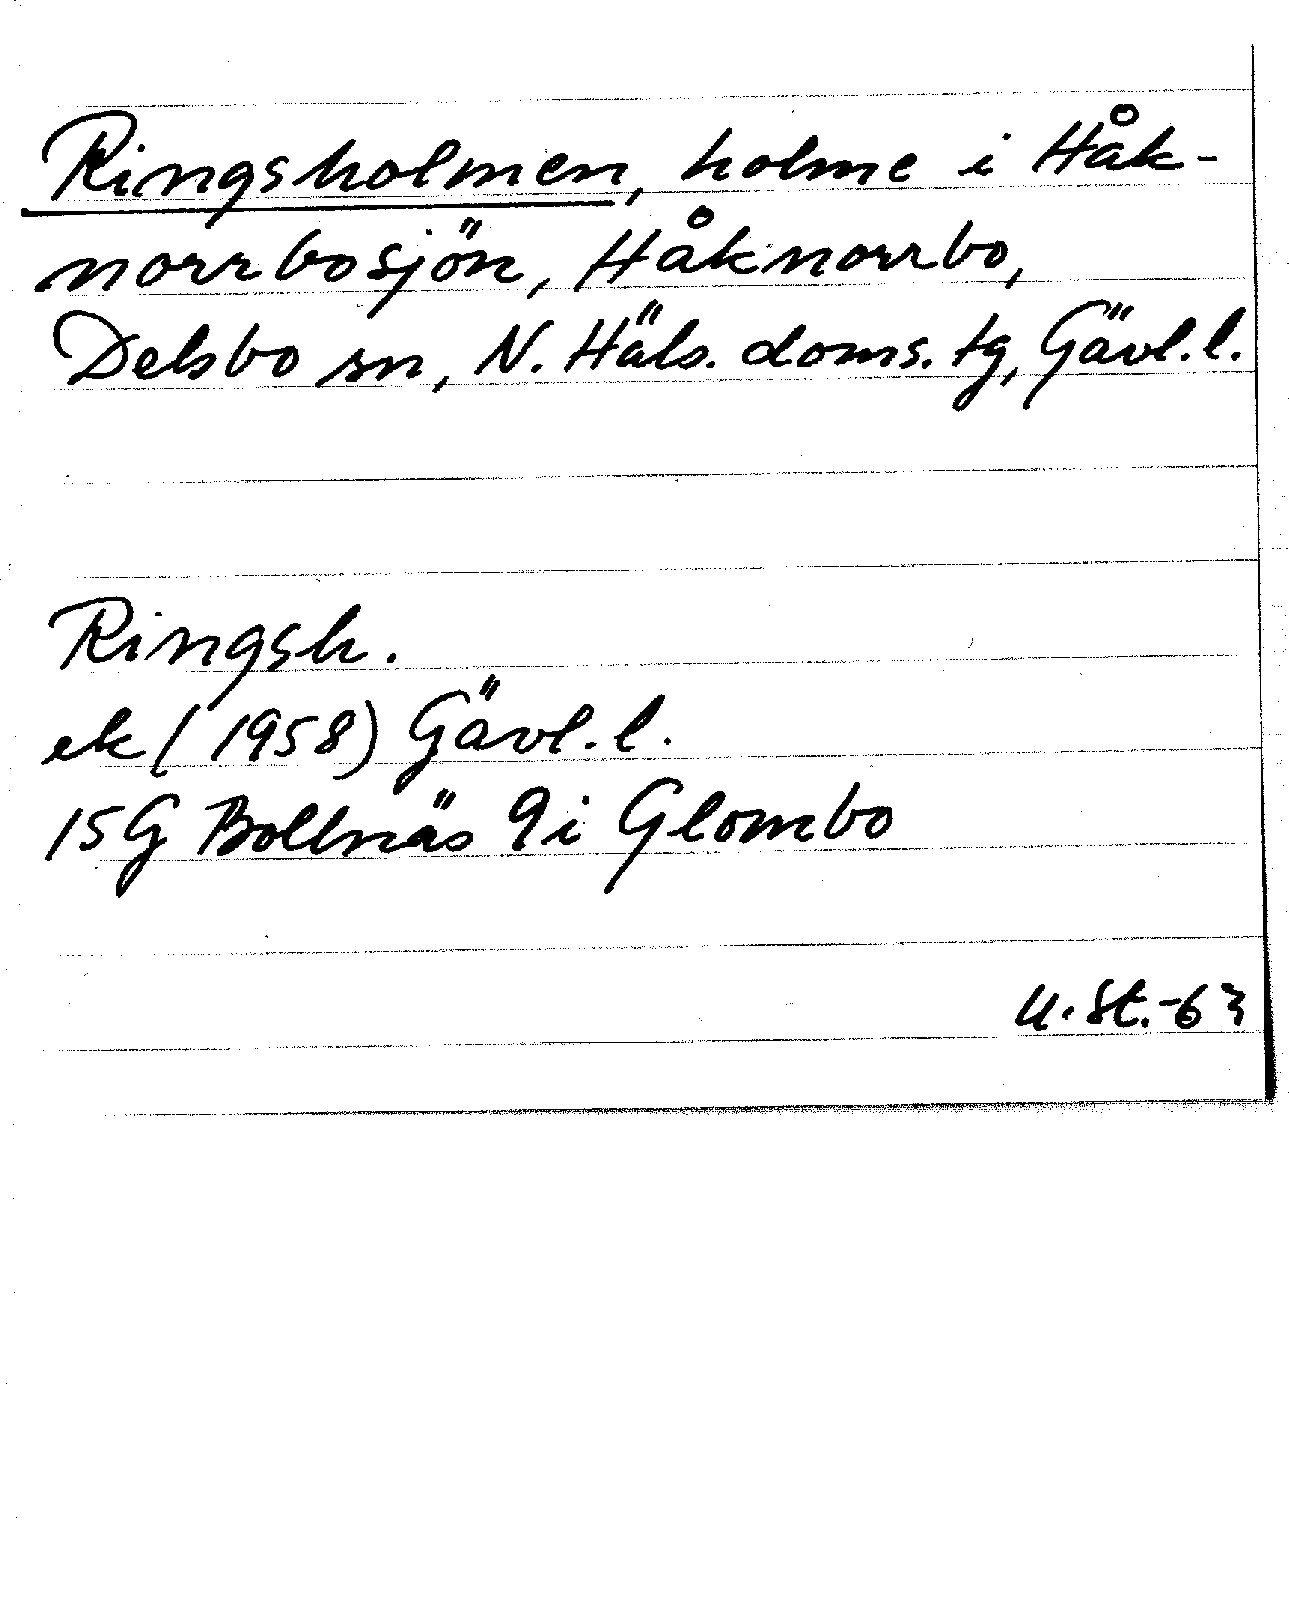 Ringsholmen, holme i Håk-
norrbosjön, Håknorrbo,
Delsbo sn, N. Häls. doms. tg, Gävl. l.
Ringsh.
ek (1958) Gävl. l.
15G Bollnäs 9i Glombo
U. St. -63